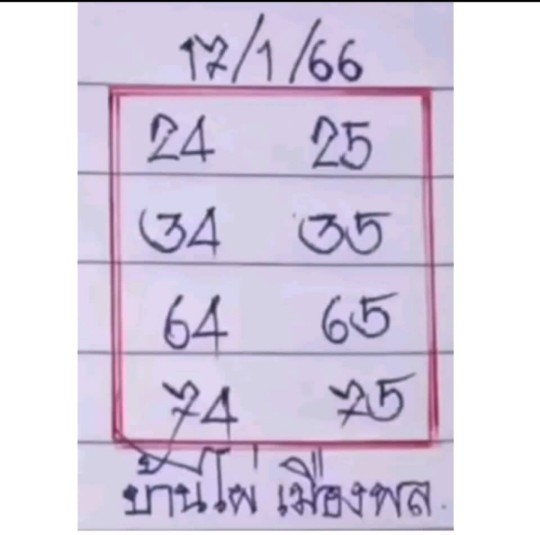 17/1/66
24 25
34 35
64 65
74 75
บ้านไผ่ เมืองพล